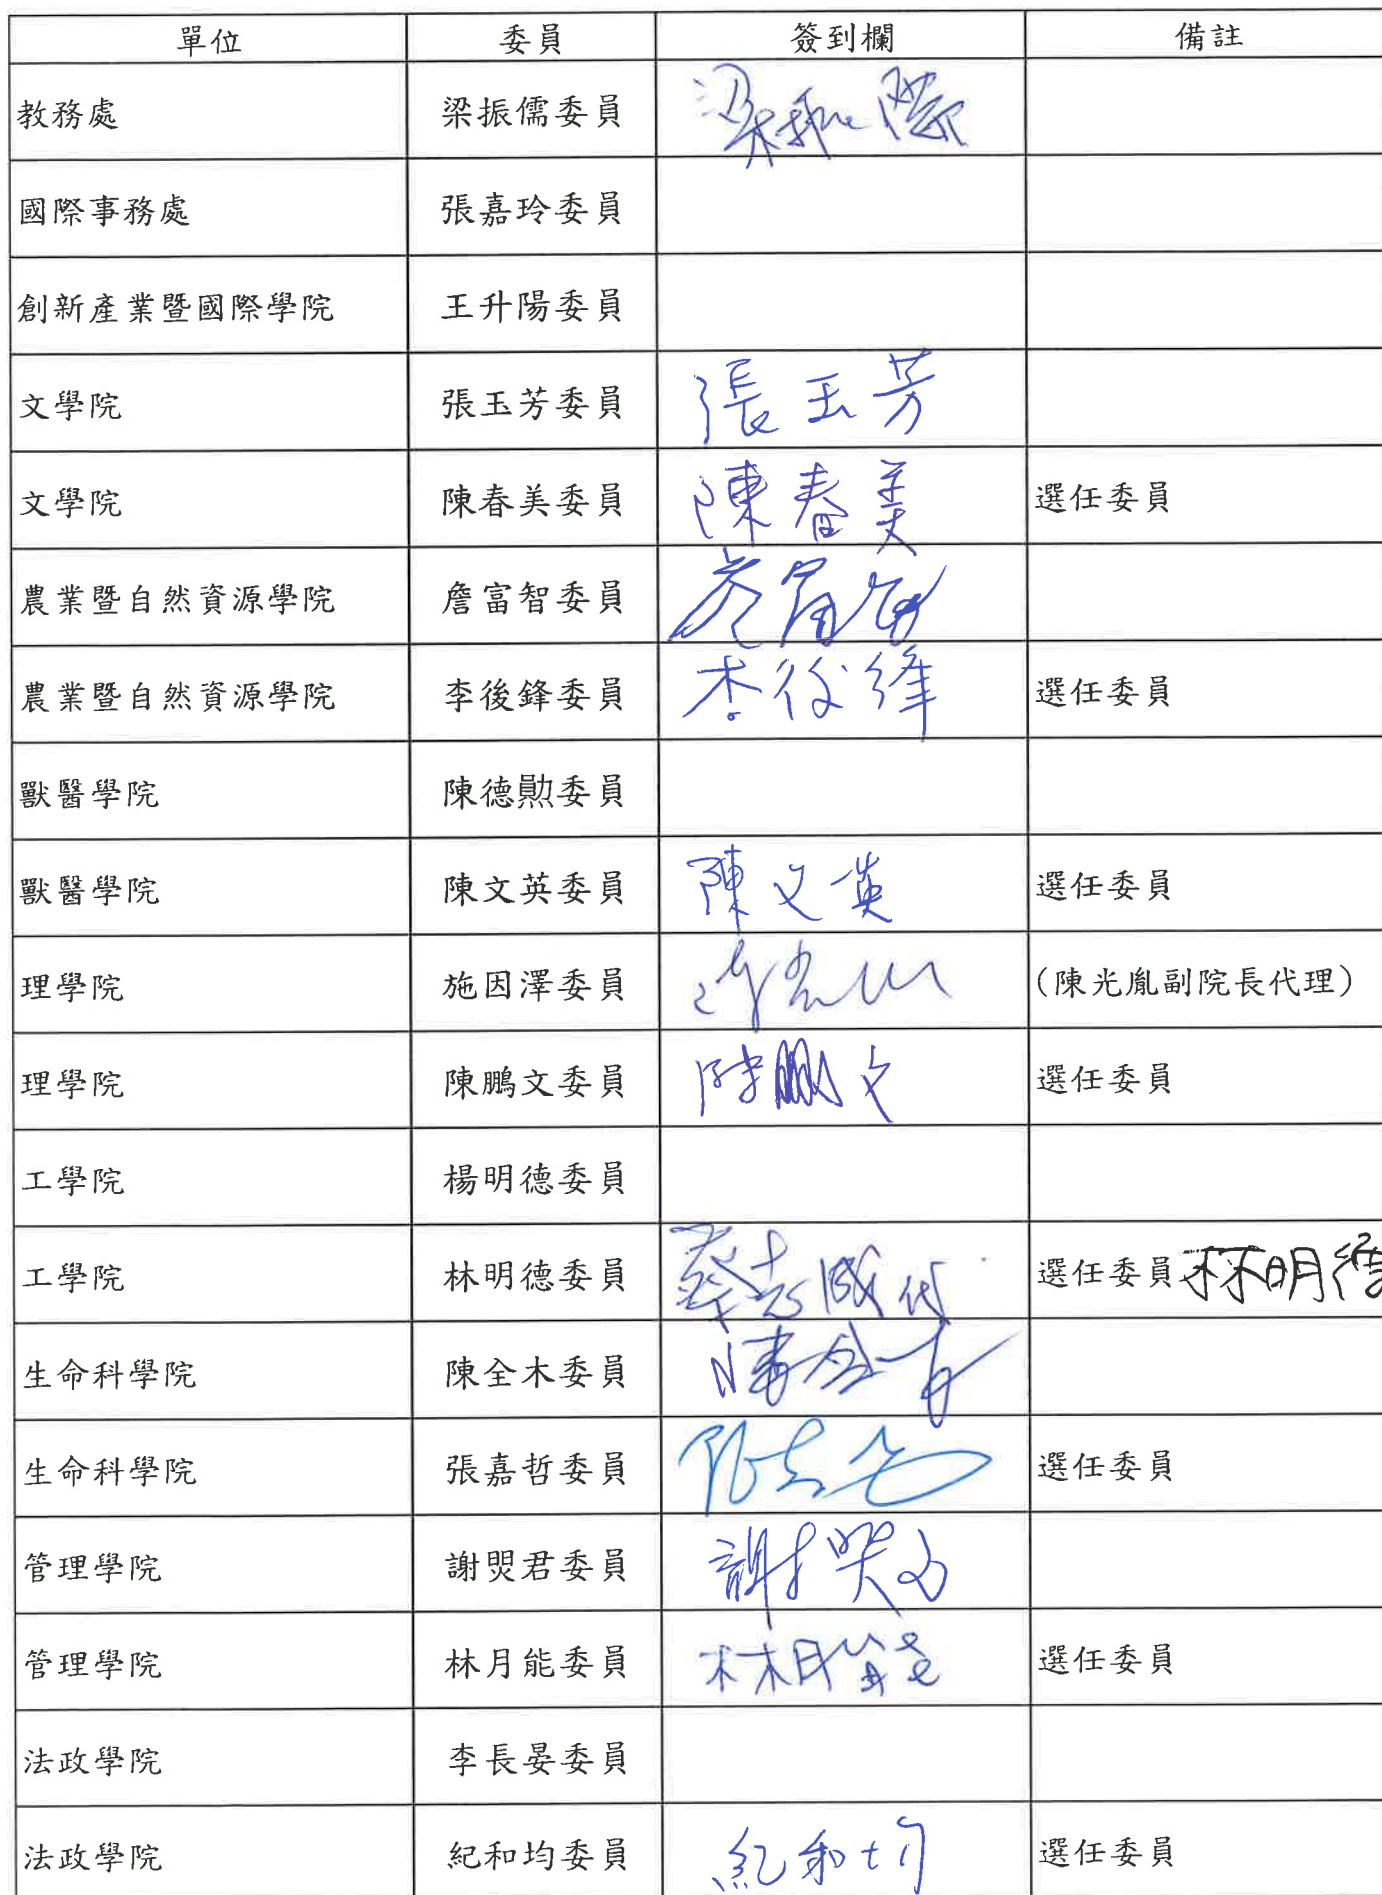 單位 委員 簽到欄 備註
教務處 梁振儒委員 梁振儒
國際事務處 張嘉玲委員
創新產業暨國際學院 王升陽委員
文學院 張玉芳委員 張玉芳
文學院 陳春美委員 陳春美 選任委員
農業暨自然資源學院 詹富智委員 詹富智
農業暨自然資源學院 李後鋒委員 李後鋒 選任委員
獸醫學院 陳德勲委員
獸醫學院 陳文英委員 陳文英 選任委員
理學院 施因澤委員 (陳光胤副院長代理)
理學院 陳鵬文委員 陳鵬文 選任委員
工學院 楊明德委員
工學院 林明德委員 蔡志成代 選任委員 林明德
生命科學院 陳全木委員 陳全木
生命科學院 張嘉哲委員 張嘉哲 選任委員
管理學院 謝焸君委員 謝焸君
管理學院 林月能委員 林月能 選任委員
法政學院 李長晏委員
法政學院 紀和均委員 紀和均 選任委員